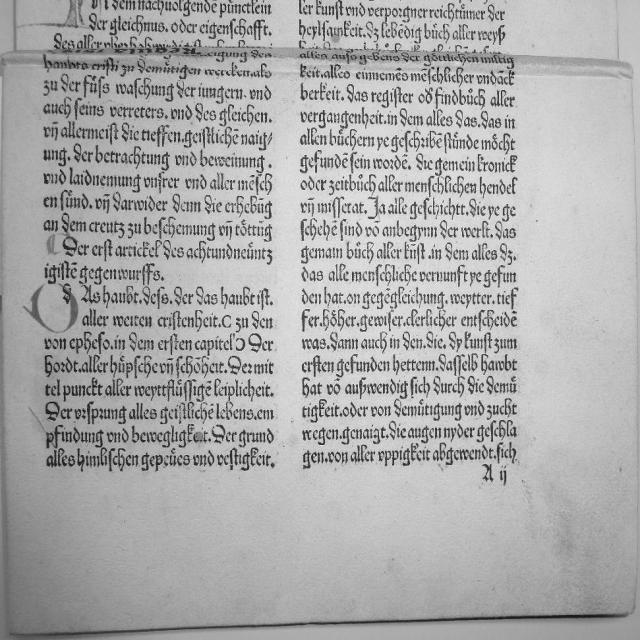 dem nachuolgende pünctlein
der gleichnus. oder eigenschafft.
des aller
haubts cristi zu demütigen wercken als
zu der füss waschung der iungern. vnd
auch seins verreters. vnd des gleichen.
vñ allermeist die tieffen. geistlichē naig/
ung. der betrachtung vnd beweinung.
vnd laidnemung vnsrer vnd aller mēsch
en sünd. vñ darwider denn die erhebūg
an dem creutz zu beschemung vñ töttūg
Der erst artickel des achtundneüntz
igistē gegenwurffs.
DAs haubt. dess. der das haubt ist.
aller weiten cristenheit. C zu den
von epheso. in dem ersten capitel Ɔ Der
hordt. aller hüpsche vñ schönheit. Der mit
tel punckt aller weyttflüssigē leiplicheit.
Der vrsprung alles geistlichē lebens. em
pfindung vnd bewegligkeit. Der grund
alles himlischen gepeües vnd vestigkeit.
ler kunst vnd verporgner reichtümer der
heylsamkeit. dz lebēdig bůch aller weyß
alles ausgebens der götlichen miltig
keit. alles einnemēs mēschlicher vndāck
berkeit. das register oď findbůch aller
vergangenheit. in dem alles das. das in
allen bůchern ye geschribē stünde möcht
gefundē sein wordē. die gemein kronick
oder zeitbůch aller menschlichen hendel
vñ missetat. Ja alle geschichtt. die ye ge
schehē sind vō anbegynn der werlt. das
gemain bůch aller kūst. in dem alles dz.
das alle menschliche vernunft ye gefun
den hat. on gegēgleichung. weytter. tief
fer. höher. gewiser. clerlicher entscheidē
was. dann auch in den. die. dy kunst zum
ersten gefunden hettenn. dasselb hawbt
hat vō außwendig sich durch die demü
tigkeit. oder von demütigung vnd zucht
wegen. genaigt. die augen nyder geschla
gen. von aller vppigkeit abgewendt. sich
A ij